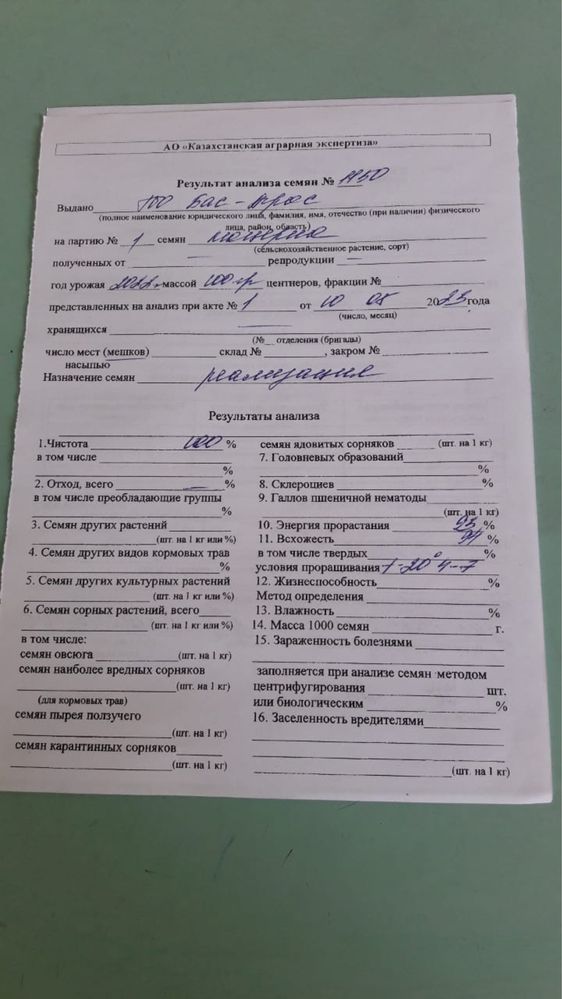 АО «Казахстанская аграрная экспертиза»
Результат анализа семян №
Выдано ТОО Бас-Арас
(полное наименование юридического лица, фамилия, имя, отчество (при наличии) физического
лица, район, область)
на партию № 1 семян
(сельскохозяйственное растение, сорт)
полученных от — репродукции —
год урожая 2022 г. массой 100 гр центнеров, фракции №
представленных на анализ при акте № 1 от 10 05 2023 года
(число, месяц)
хранящихся
(№ отделения (бригады)
число мест (мешков) склад № , закром №
насыпью
Назначение семян реализация
Результаты анализа
1.Чистота 100 %
в том числе
%
2. Отход, всего — %
в том числе преобладающие группы
%
3. Семян других растений
(шт. на 1 кг или %)
4. Семян других видов кормовых трав
%
5. Семян других культурных растений
(шт. на 1 кг или %)
6. Семян сорных растений, всего
(шт. на 1 кг или %)
в том числе:
семян овсюга (шт. на 1 кг)
семян наиболее вредных сорняков
(шт. на 1 кг)
(для кормовых трав)
семян пырея ползучего
(шт. на 1 кг)
семян карантинных сорняков
(шт. на 1 кг)
семян ядовитых сорняков (шт. на 1 кг)
7. Головневых образований
%
8. Склероциев %
9. Галлов пшеничной нематоды
(шт. на 1 кг)
10. Энергия прорастания 93 %
11. Всхожесть %
в том числе твердых %
условия проращивания t-20° 4-7
12. Жизнеспособность %
Метод определения
13. Влажность %
14. Масса 1000 семян г.
15. Зараженность болезнями
заполняется при анализе семян методом
центрифугирования шт.
или биологическим %
16. Заселенность вредителями
(шт. на 1 кг)